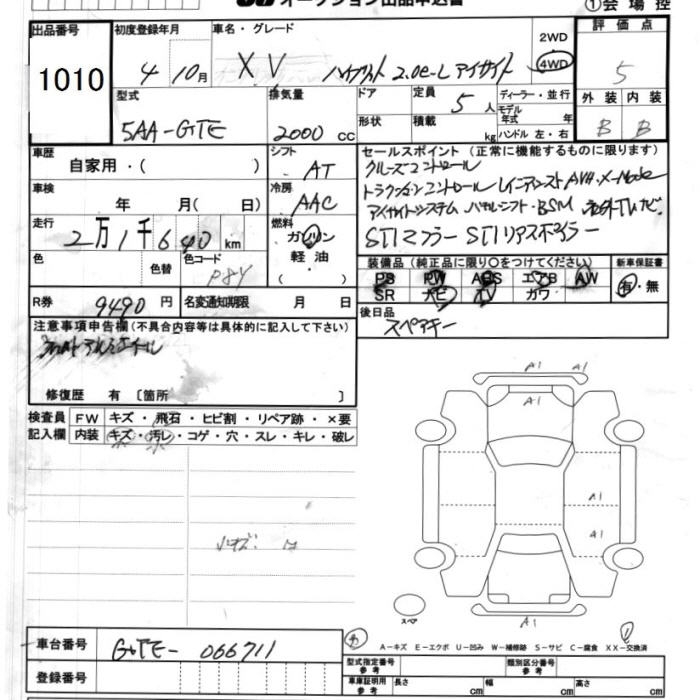 オークション出品申込書
① 会 場 控
出品番号 初度登録年月 車名・グレード 評 価 点
1010
4 10月
XV ハイブリット 2.0e-L アイサイト
2WD
4WD
5
型式 排気量 ドア 定員 ディーラー・並行 外 装 内 装
5AA-GTE 2000 cc 5人
モデル年式 年
形状 積載 kg ハンドル 左・右
B B
車歴 自家用・( )
シフト AT
セールスポイント (正常に機能するものに限ります)
クルーズコントロール
車検 年 月( 日)
冷房 AAC
アイサイトシステム
BSM
走行 2万1千640 km
燃料 ガソリン 軽油・( )
STIマフラー STIリアスポイラー
色 色替 色コード P8Y
装備品 (純正品に限り○をつけてください) 新車保証書
PS PW ABS エアB AW 有・無
SR ナビ TV カワ
R券 9490円 名変通知期限 月 日
後日品 スペアキー
注意事項申告欄 (不具合内容等は具体的に記入して下さい)
アルミホイール
修復歴 有 [箇所 ]
検査員記入欄 FW キズ・飛石・ヒビ割・リペア跡・×要
内装 キズ・汚レ・コゲ・穴・スレ・キレ・破レ
A1 A1
A1
A1
A1
A1
スペア
A-キズ E-エクボ U-凹み W-補修跡 S-サビ C-腐食 XX-交換済
車台番号 GTE-066711
型式指定番号 参考 類別区分番号 参考
登録番号
車庫証明用 参考 長さ cm 幅 cm 高さ cm